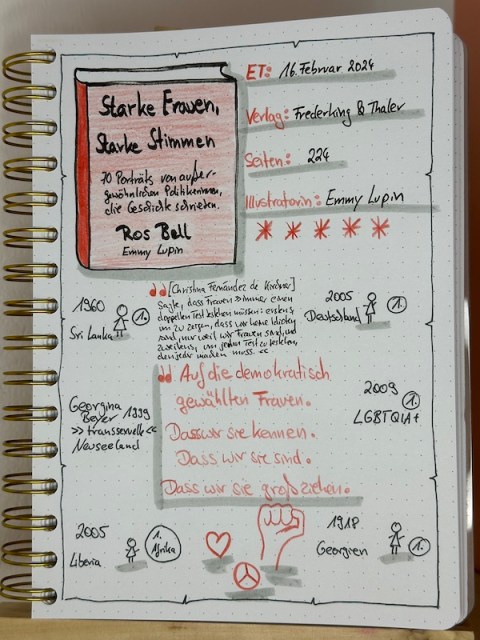 Starke Frauen,
Starke Stimmen
70 Porträts von außer-
gewöhnlichen Politikerinnen,
die Geschichte schrieben.
Ros Ball
Emmy Lupin
ET: 16. Februar 2024
Verlag: Frederking & Thaler
Seiten: 224
Illustratorin: Emmy Lupin
[Christina Fernández de Kirchner]
Sagte, dass Frauen immer einen
doppelten Test bestehen müssen: erstens,
um zu zeigen, dass wir keine Idioten
sind, nur weil wir Frauen sind, und
zweitens, um jeden Test zu bestehen,
den jeder machen muss. «
1960
1.
Sri Lanka
2005
1.
Deutschland
Auf die demokratisch
gewählten Frauen.
Dass wir sie kennen.
Dass wir sie sind.
Dass wir sie großziehen.
Georgina
Beyer 1999
>> transsexuelle <<
Neuseeland
2009
1.
LGBTQIA+
2005
1.
Afrika
Liberia
1918
1.
Georgien